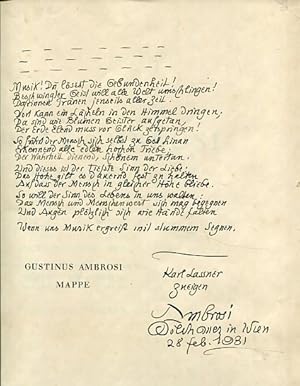 Musik! Du lösest die Gebundenheit!
Beschwingter Geist will alle Welt umschlingen!
Tränen jenseits aller Zeit.
Dort kann ein Lächeln in den Himmel dringen,
Da sind wie Blumen Geister aufgetan,
Der Erde Elend muss vor Glück zerspringen!
So fand der Mensch sich selbst zu Gott hinan
Erkennend alle edlen hohen Triebe,
Der Wahrheit dienend, schönem untertan.
Und dieses ist der tiefste Sinn der Liebe:
Das Hohe gilt es dauernd fest zu halten
Auf dass der Mensch in gleicher Höhe bliebe.
So will der Sinn des Lebens in uns walten,
Das Mensch und Menschenwert sich mag begegnen
Und Augen plötzlich sich wie Hände falten
Wenn uns Musik ergreift mit stummem Segnen.
GUSTINUS AMBROSI
MAPPE
Karl Lassner
zueigen
Ambrosi
in Wien
28 feb. 1931